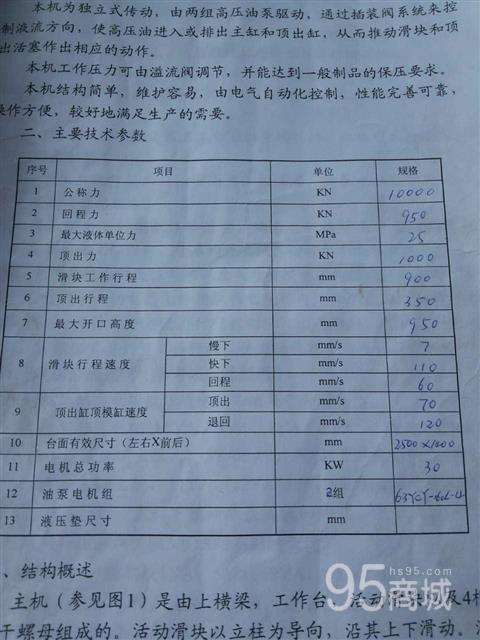 本机为独立式传动，由两组高压油泵驱动，通过插装阀系统来控
制液流方向，使高压油进入或排出主缸和顶出缸，从而推动滑块和顶
出活塞作出相应的动作。
本机工作压力可由溢流阀调节，并能达到一般制品的保压要求。
本机结构简单，维护容易，由电气自动化控制，性能完善可靠，
操作方便，较好地满足生产的需要。
二、主要技术参数
序号 项目 单位 规格
1 公称力 KN 10000
2 回程力 KN 950
3 最大液体单位力 MPa 25
4 顶出力 KN 1000
5 滑块工作行程 mm 900
6 顶出行程 mm 350
7 最大开口高度 mm 950
8 滑块行程速度 慢下 mm/s 7
快下 mm/s 110
回程 mm/s 60
9 顶出缸顶模缸速度 顶出 mm/s 70
退回 mm/s 120
10 台面有效尺寸（左右X前后） mm
11 电机总功率 KW 30
12 油泵电机组 2组
13 液压垫尺寸 mm
、结构概述
主机（参见图1）是由上横梁，工作台，活动滑块以及4根
干螺母组成的。活动滑块以立柱为导向，沿其上下滑动，
95商城
hs95.com